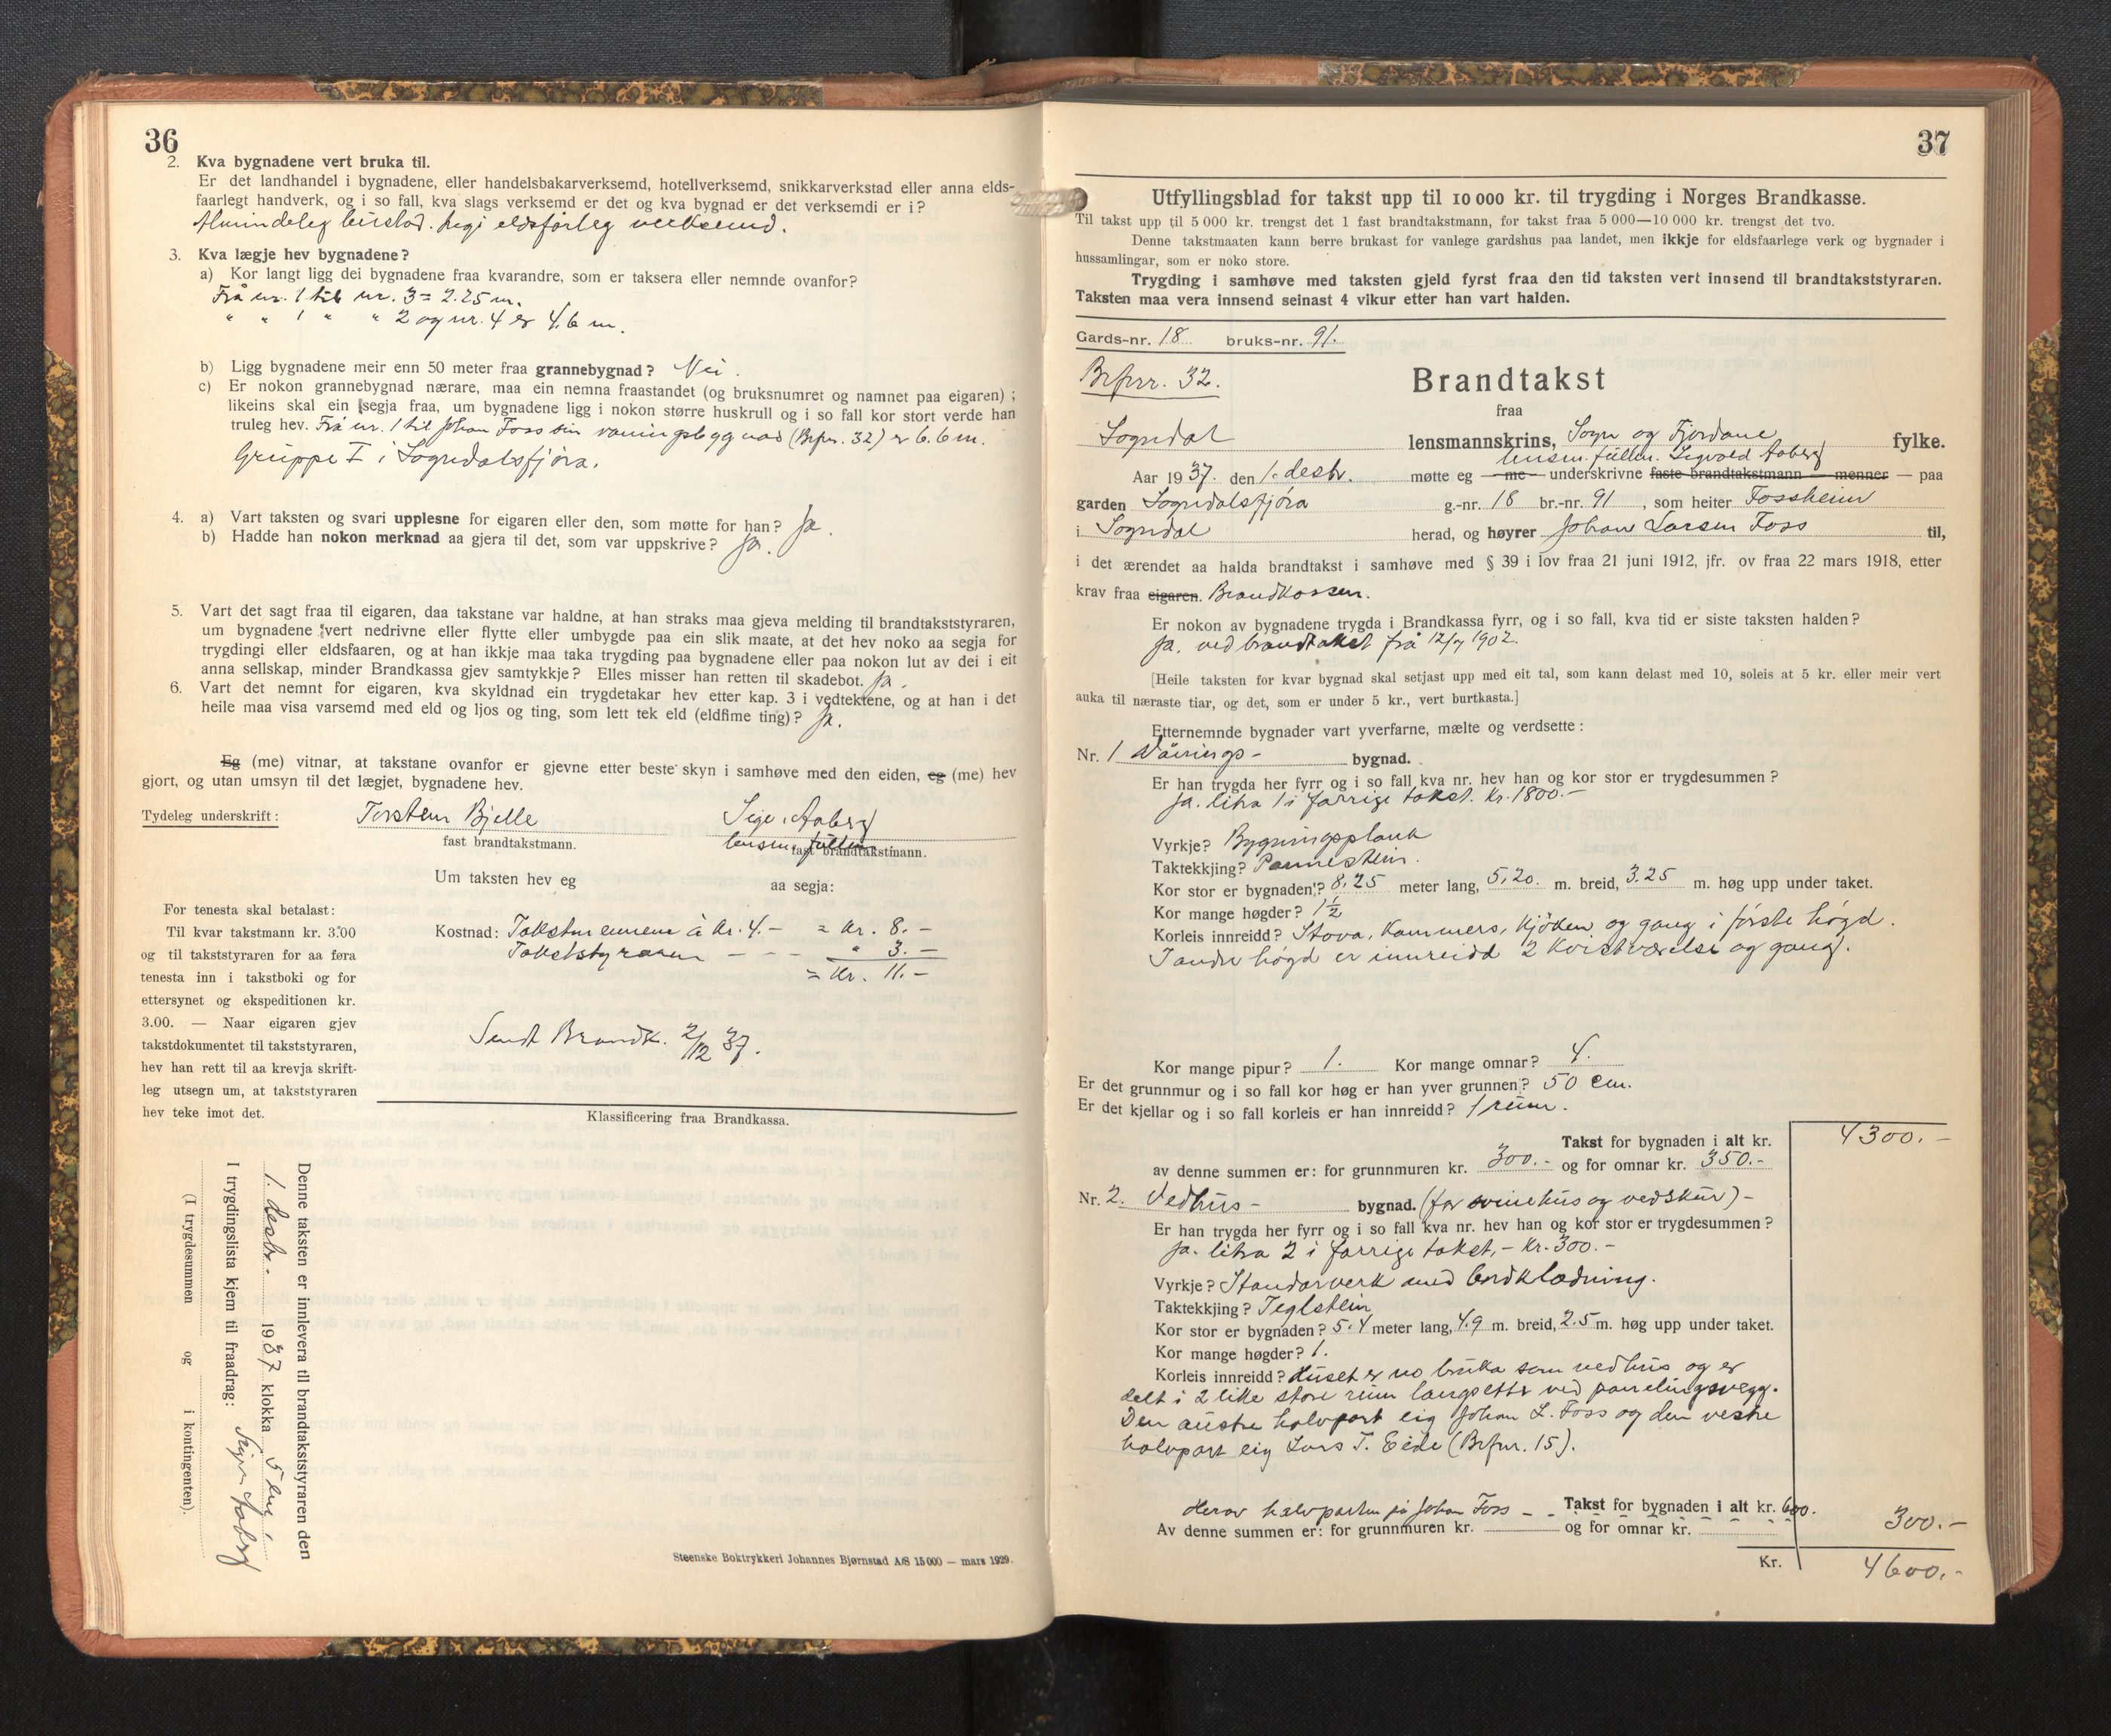 36
2. Kva bygnadene vert bruka til.
Er det landhandel i bygnadene, eller handelsbakarverksemd, hotellverksemd, snikkarverkstad eller anna elds-
faarlegt handverk, og i so fall, kva slags verksemd er det og kva bygnad er det verksemdi er i?
Almindeleg bustad. Ingi eldsfårleg verksemd.
3. Kva lægje hev bygnadene?
a) Kor langt ligg dei bygnadene fraa kvarandre, som er taksera eller nemnde ovanfor?
Frå nr. 1 til nr. 3 = 2.25 m.
" " 1 " " 2 og nr. 4 er 4,6 m.
b) Ligg bygnadene meir enn 50 meter fraa grannebygnad? Nei.
c) Er nokon grannebygnad nærare, maa ein nemna fraastandet (og bruksnumret og namnet paa eigaren);
likeins skal ein segja fraa, um bygnadene ligg i nokon større huskrull og i so fall kor stort verde han
truleg hev. Frå nr. 1 til Johan Foss sin våningsbygnad (Brfnr. 32) er 6.6 m.
Gruppe I i Sogndalsfjøra.
4. a) Vart taksten og svari upplesne for eigaren eller den, som møtte for han? Ja.
b) Hadde han nokon merknad aa gjera til det, som var uppskrive? Ja.
5. Vart det sagt fraa til eigaren, daa takstane var haldne, at han straks maa gjeva melding til brandtakststyraren,
um bygnadene vert nedrivne eller flytte eller umbygde paa ein slik maate, at det hev noko aa segja for
trygdingi eller eldsfaaren, og at han ikkje maa taka trygding paa bygnadene eller paa nokon lut av dei i eit
anna sellskap, minder Brandkassa gjev samtykkje? Elles misser han retten til skadebot. Ja.
6. Vart det nemnt for eigaren, kva skyldnad ein trygdetakar hev etter kap. 3 i vedtektene, og at han i det
heile maa visa varsemd med eld og ljos og ting, som lett tek eld (eldfime ting)? Ja.
Eg (me) vitnar, at takstane ovanfor er gjevne etter beste skyn i samhøve med den eiden, eg (me) hev
gjort, og utan umsyn til det lægjet, bygnadene hev.
Tydeleg underskrift: Torstein Bjelle Sigv. Aaberg
fast brandtakstmann. lensm. fullm. fast brandtakstmann.
Um taksten hev eg aa segja:
For tenesta skal betalast:
Til kvar takstmann kr. 3.00
og til takststyraren for aa føra
tenesta inn i takstboki og for
ettersynet og ekspeditionen kr.
3.00. — Naar eigaren gjev
takstdokumentet til takststyraren,
hev han rett til aa krevja skrift-
leg utsegn um, at takststyraren
hev teke imot det.
Kostnad: Takstmennene à kr. 4.- = kr. 8.-
Takststyraren - - - " 3.-
= kr. 11.-
Sendt Brandk. 2/12 37.
Klassificering fraa Brandkassa.
Denne taksten er innlevera til brandtakststyraren den
1. desbr. 1937 klokka 5 em
I trygdingslista kjem til fraadrag: Sigv. Aaberg
(I trygdesummen og i kontingenten).
Steenske Boktrykkeri Johannes Bjørnstad A/S 15 000 — mars 1929.
37
Utfyllingsblad for takst upp til 10 000 kr. til trygding i Norges Brandkasse.
Til takst upp til 5 000 kr. trengst det 1 fast brandtakstmann, for takst fraa 5 000—10 000 kr. trengst det tvo.
Denne takstmaaten kann berre brukast for vanlege gardshus paa landet, men ikkje for eldsfaarlege verk og bygnader i
hussamlingar, som er noko store.
Trygding i samhøve med taksten gjeld fyrst fraa den tid taksten vert innsend til brandtakststyraren.
Taksten maa vera innsend seinast 4 vikur etter han vart halden.
Gards-nr. 18 bruks-nr. 91.
Brfnr. 32.
Brandtakst
fraa
Sogndal lensmannskrins, Sogn og Fjordane fylke.
lensm. fullm. Sigvald Aaberg
Aar 1937. den 1. desbr. møtte eg — me — underskrivne faste brandtakstmann — menner — paa
garden Sogndalsfjøra g.-nr. 18 br.-nr. 91, som heiter Fossheim
i Sogndal herad, og høyrer Johan Larsen Foss til,
i det ærendet aa halda brandtakst i samhøve med § 39 i lov fraa 21 juni 1912, jfr. ov fraa 22 mars 1918, etter
krav fraa eigaren. Brandkassen.
Er nokon av bygnadene trygda i Brandkassa fyrr, og i so fall, kva tid er siste taksten halden?
Ja. ved brandtakst frå 12/7 1902.
[Heile taksten for kvar bygnad skal setjast upp med eit tal, som kann delast med 10, soleis at 5 kr. eller meir vert
auka til næraste tiar, og det, som er under 5 kr., vert burtkasta.]
Etternemnde bygnader vart yverfarne, mælte og verdsette:
Nr. 1 Vånings- bygnad.
Er han trygda her fyrr og i so fall kva nr. hev han og kor stor er trygdesummen?
Ja. litra 1 i førrige takst. Kr. 1800.-
Vyrkje? Bygningsplank
Taktekkjing? Pannestein.
Kor stor er bygnaden? 8,25 meter lang, 5,20. m. breid, 3.25 m. høg upp under taket.
Kor mange høgder? 1 1/2
Korleis innreidd? Stova, kammers, kjöken og gang i første høgd.
I andre høgd er innreidd 2 kvistværelse og gang.
Kor mange pipur? 1. Kor mange omnar? 4.
Er det grunnmur og i so fall kor høg er han yver grunnen? 50 cm.
Er det kjellar og i so fall korleis er han innreidd? 1 rum.
Takst for bygnaden i alt kr. 4300.-
av denne summen er: for grunnmuren kr. 300.- og for omnar kr. 350.-
Nr. 2. Vedhus- bygnad. (før svinehus og vedskur)-
Er han trygda her fyrr og i so fall kva nr. hev han og kor stor er trygdesummen?
Ja. litra 2 i førrige takst,- kr. 300.-
Vyrkje? Standarverk med bordklædning.
Taktekkjing? Teglstein
Kor stor er bygnaden? 5.4 meter lang, 4.9 m. breid, 2.5 m. høg upp under taket.
Kor mange høgder? 1.
Korleis innreidd? Huset er no bruka som vedhus og er
delt i 2 like store rum langsetter ved panelingsvegg.
Den austre halvpart eig Johan L. Foss og den vestre
halvpart eig Lars T. Eide (Brfnr. 15).
Herav halvparten på Johan Foss - - Takst for bygnaden i alt kr. 600.
Av denne summen er: for grunnmuren kr. og for omnar kr. 300.-
Kr. 4600.-